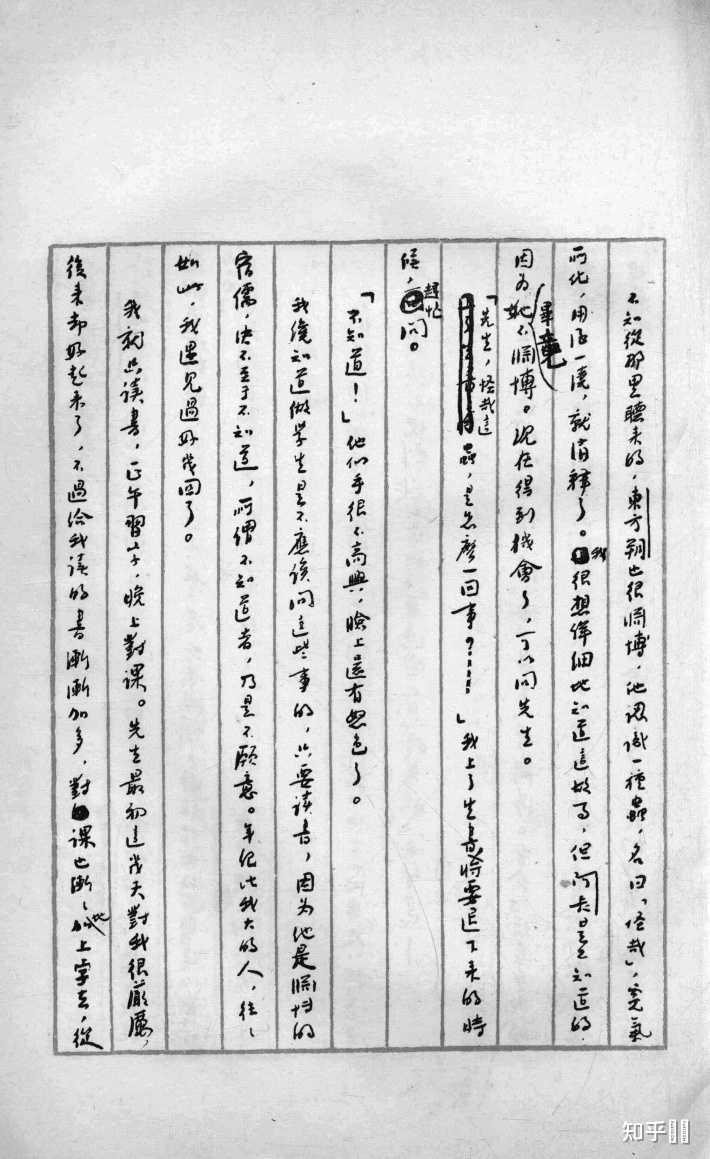 不知從那里聽来的，東方朔也很淵博，他認識一種蟲，名曰「怪哉」，冤氣
所化，用酒一澆，就消釋了。我很想詳細地知道這故事，但阿長是不知道的，
因为她畢竟不淵博。現在得到機會了，可以问先生。
「先生，怪哉這蟲，是怎麽一回事？……」我上了生書，將要退下来的時
候，趕忙问。
「不知道！」他似乎很不高興，臉上還有怒色了。
我纔知道做學生是不應該问這些事的，只要读書，因为他是淵博的
宿儒，决不至于不知道，所謂不知道者，乃是不願意。年紀比我大的人，往々
如此，我遇見過好幾回了。
我就只读書，正午習字，晚上對課。先生最初這幾天對我很嚴厲，
後来却好起来了，不過给我读的書漸漸加多，對課也漸々地加上字去，從
知乎